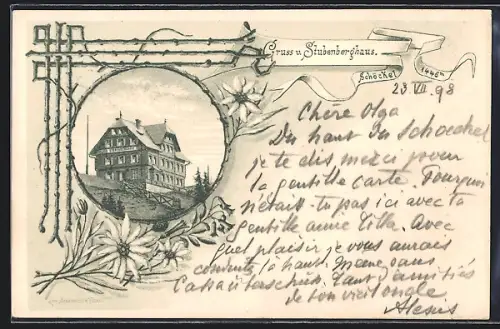 Gruss v. Stubenberghaus.
Schöckel 1446m
23 VII. 98
Chère Olga
Du haut du Schoeckel
je te dis merci pour
la gentille carte. Pourquoi
n'étais-tu pas ici avec ta
gentille amie Titta. Avec
quel plaisir je vous aurais
conduite là haut même sans
Tant d'amitiés
de ton vieil oncle
Alexis